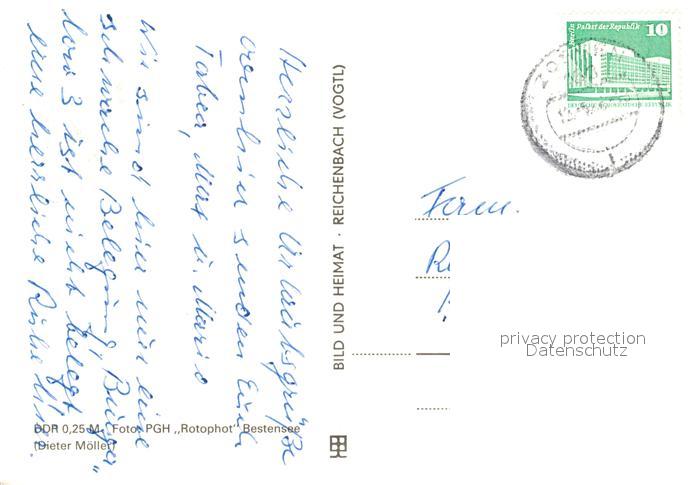 Herzliche Urlaubsgrüße
senden Euch
u. Mario
Wir sind hier nur eine
schwache Belegung, "Bungalow 3 ist nicht belegt
eine herrliche Ruhe hier.
BILD UND HEIMAT · REICHENBACH (VOGTL)
DDR 0,25 M Foto: PGH „Rotophot" Bestensee
(Dieter Möller)
Berlin Palast der Republik
10
DEUTSCHE DEMOKRATISCHE REPUBLIK
Fam.
privacy protection
Datenschutz